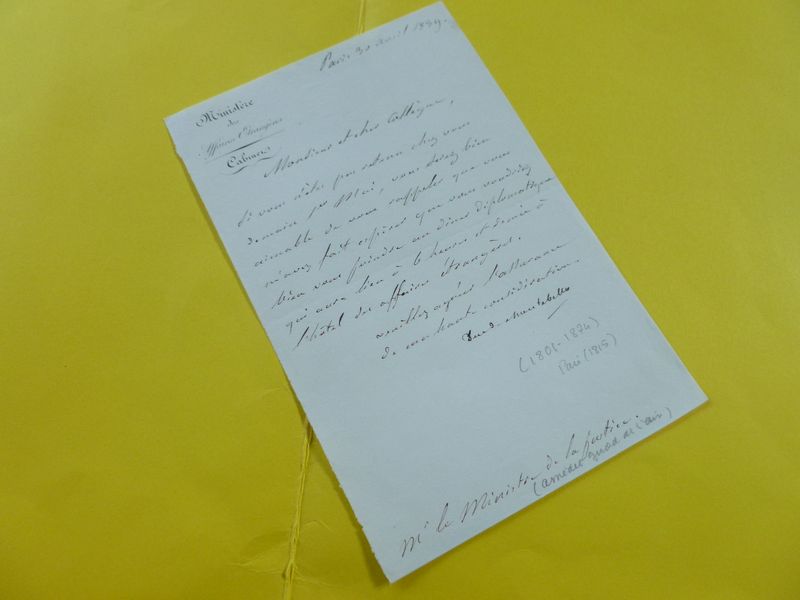 Paris 30 avril 1839.
Ministère
des
Affaires Etrangères
Cabinet
Monsieur et cher Collègue,
Si vous n'êtes pas retenu chez vous
demain 1er Mai, vous serez bien
aimable de vous rappeler que vous
m'avez fait espérer que vous voudriez
bien vous joindre au dîner diplomatique
qui aura lieu à 6 heures et demie à
l'hôtel des affaires étrangères.
veuillez agréer l'assurance
de ma haute considération.
Duc de Montebello
(1801-1874)
Pair (1815)
Mr le Ministre de la justice.
(amédée girod de l'ain)